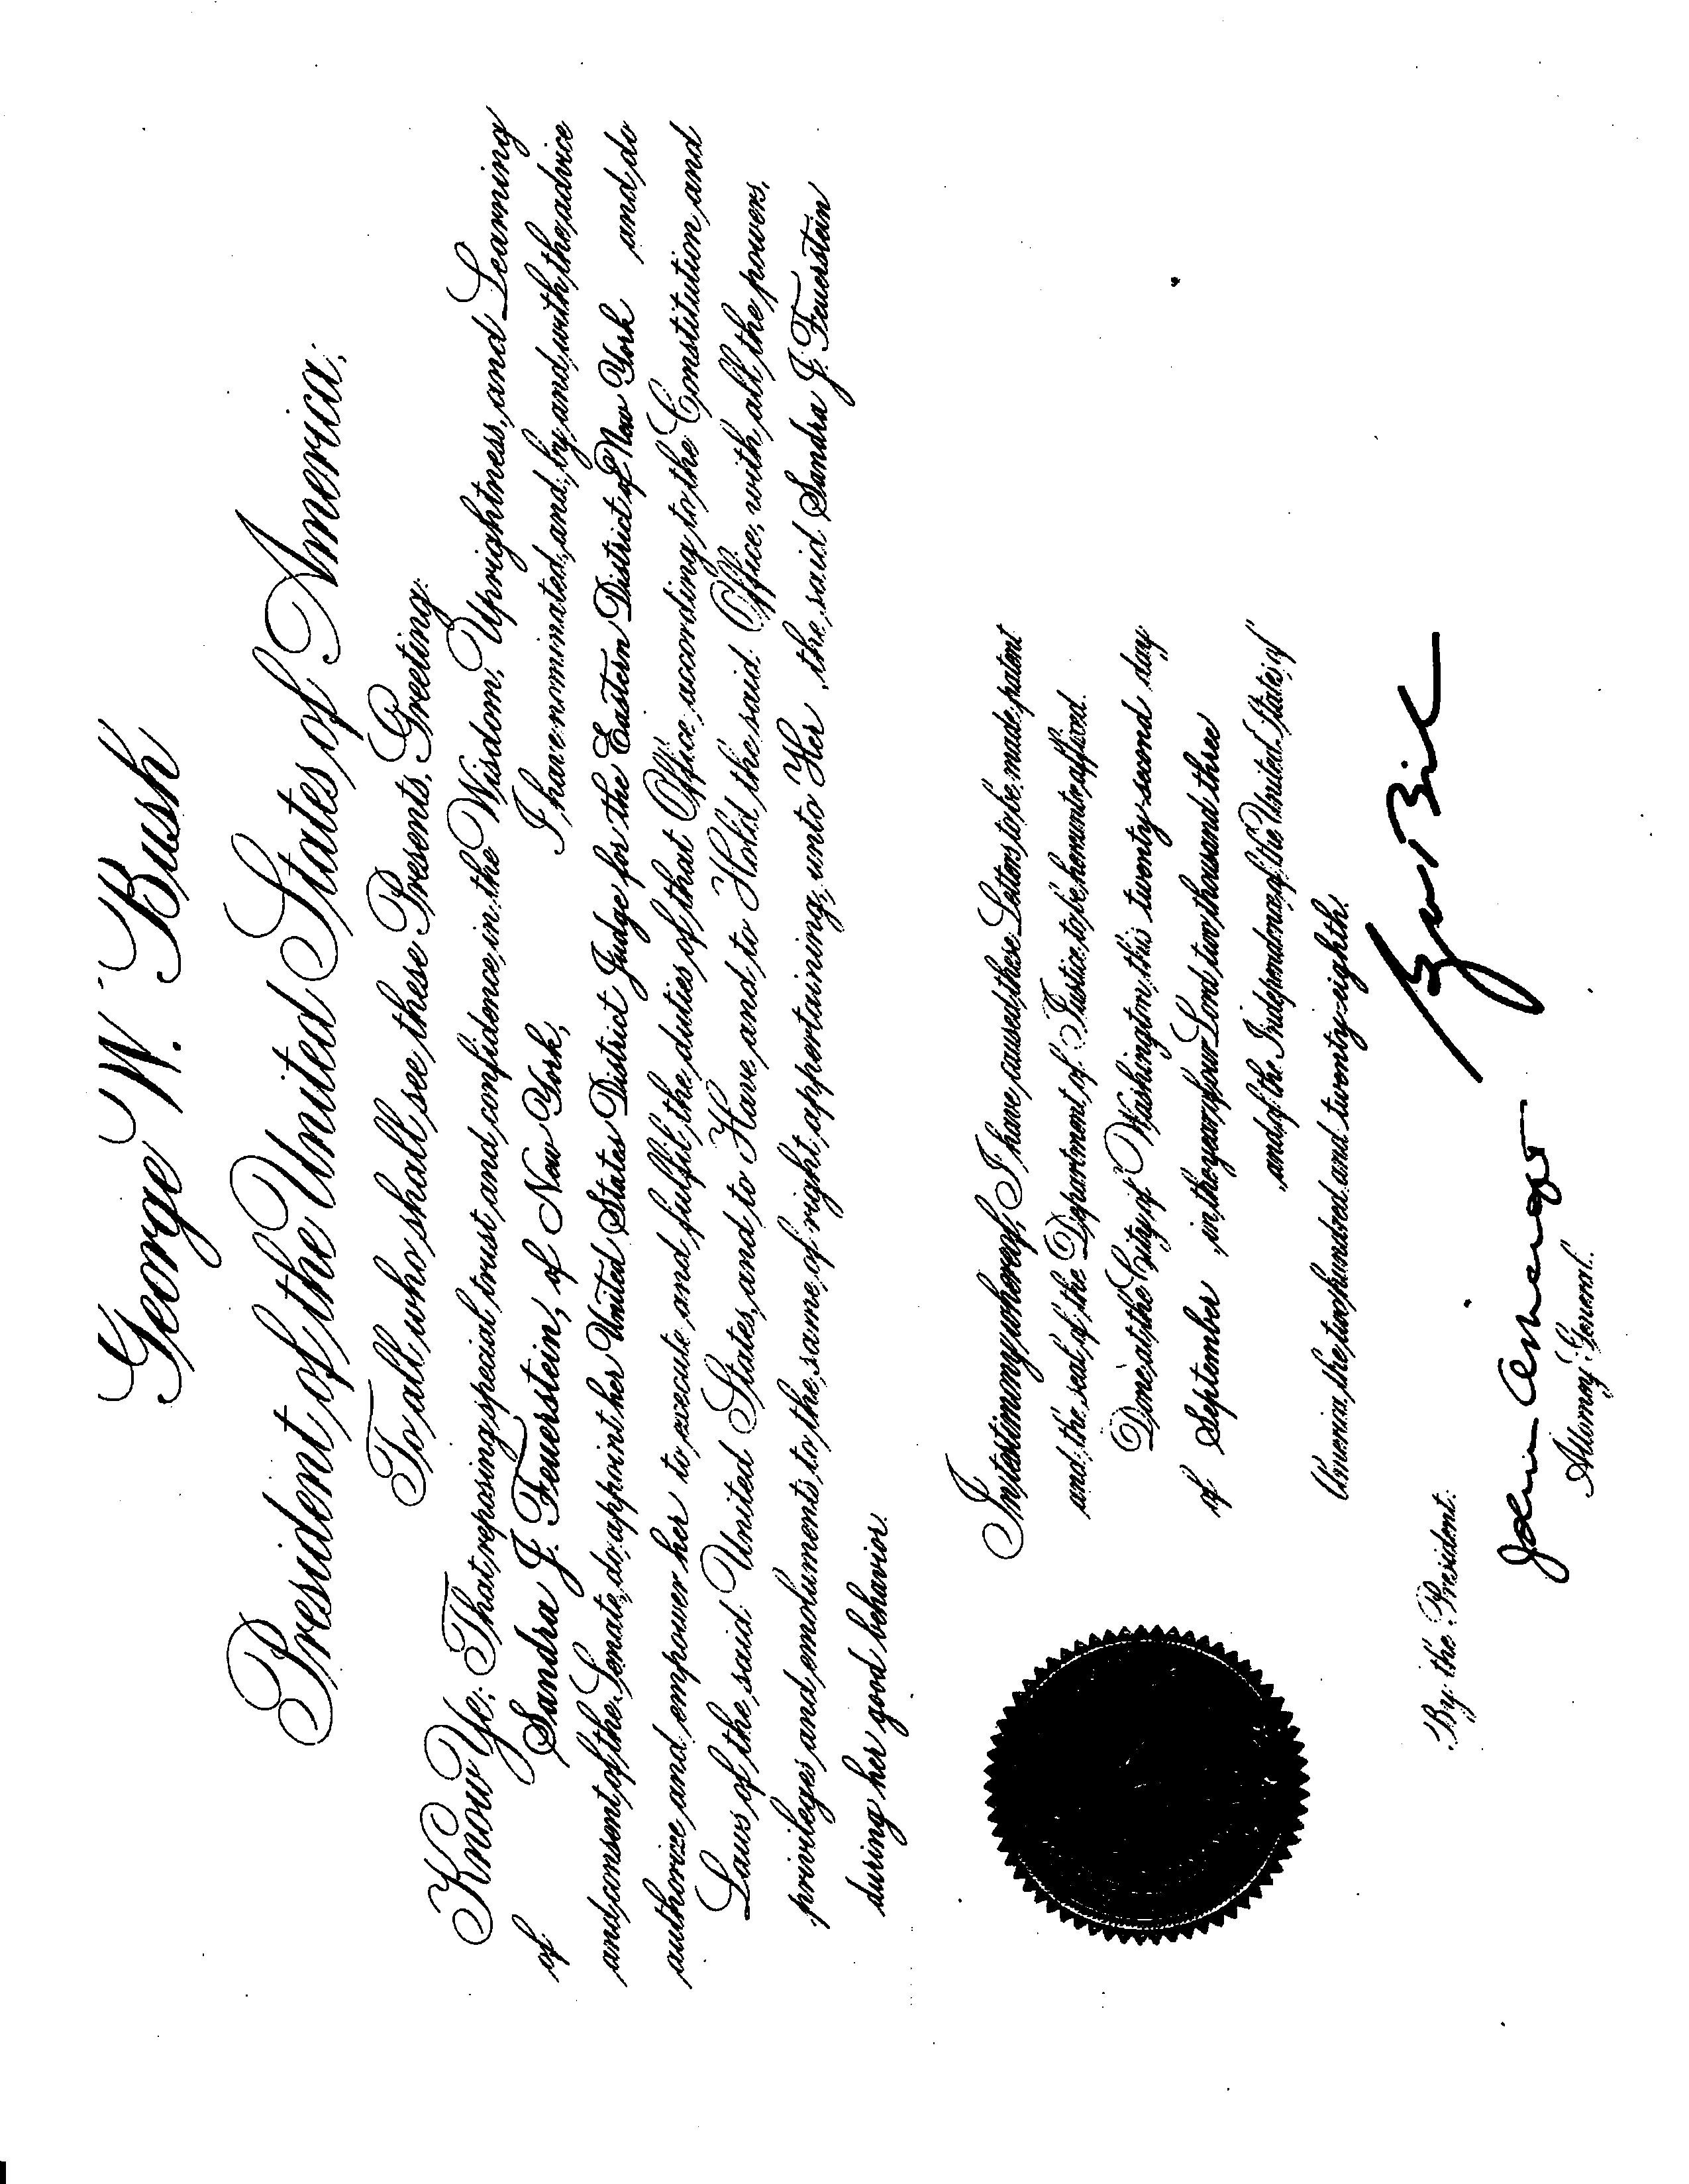 George W. Bush
President of the United States of America,
To all who shall see these Presents, Greeting:
Know Ye; That reposing special trust and confidence in the Wisdom, Uprightness, and Learning
of Sandra J. Feuerstein, of New York, I have nominated, and, by and with the advice
and consent of the Senate, do appoint her United States District Judge for the Eastern District of New York and do
authorize and empower her to execute and fulfil the duties of that Office according to the Constitution and
Laws of the said United States, and to Have and to Hold the said Office, with all the powers,
privileges and emoluments to the same of right appertaining, unto Her, the said Sandra J. Feuerstein
during her good behavior.
In testimony whereof, I have caused these Letters to be made patent
and the seal of the Department of Justice to be hereunto affixed.
Done at the City of Washington this twenty-second day
of September in the year of our Lord two thousand three
and of the Independence of the United States of
America the two hundred and twenty-eighth.
By the President:
John Ashcroft
Attorney General.